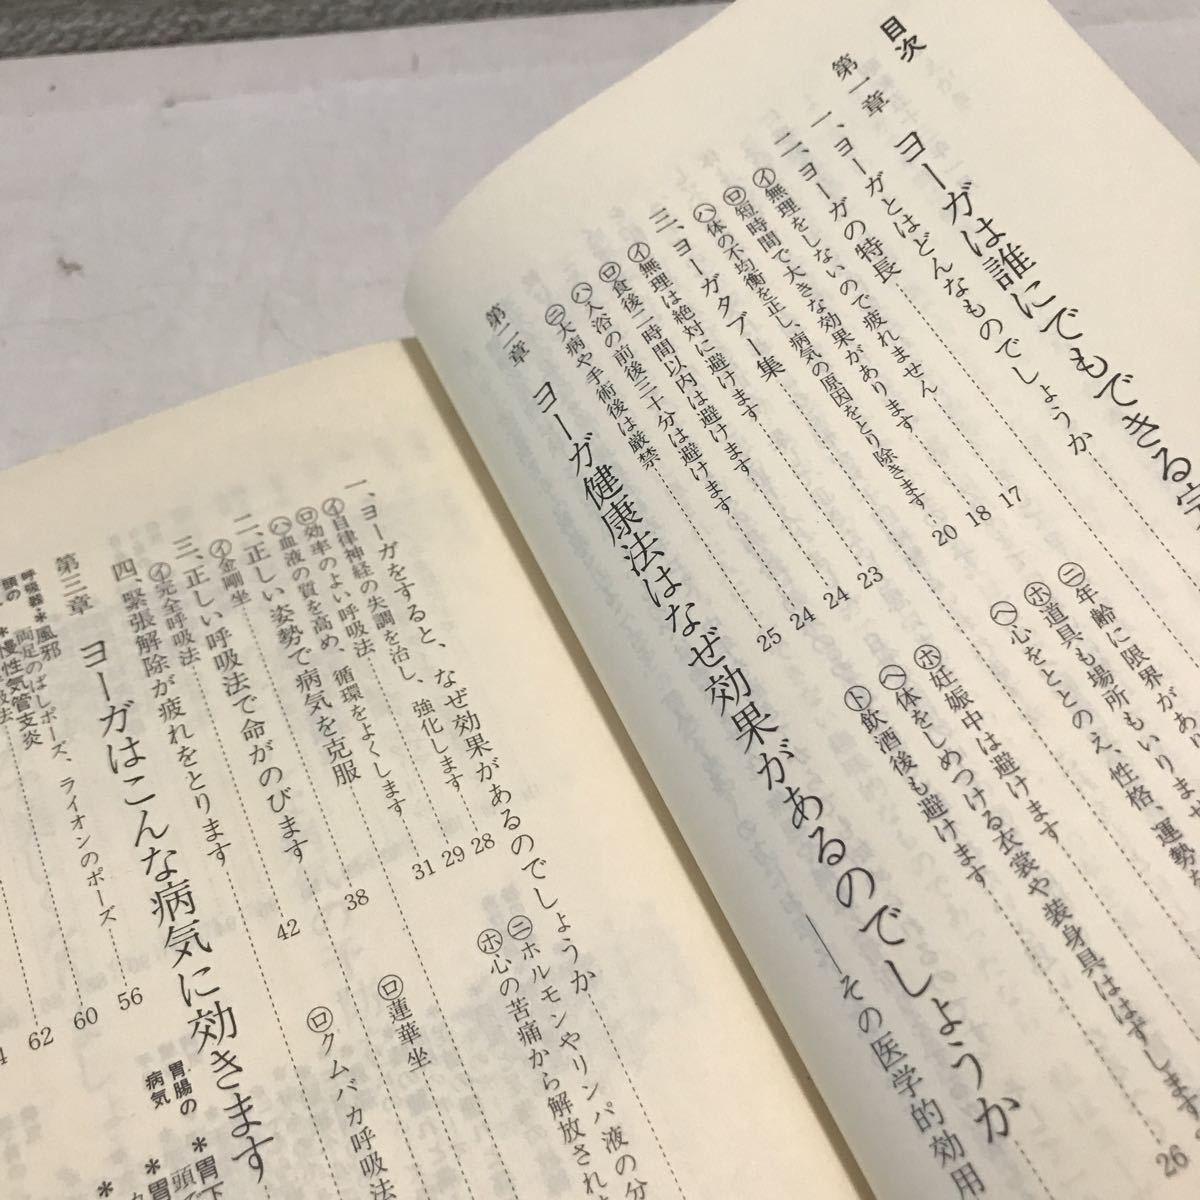 目次
第一章 ヨーガは誰にでもできる
一、ヨーガとはどんなものでしょうか
二、ヨーガの特長
イ無理をしないので疲れません 17
ロ短時間で大きな効果があります 18
ハ体の不均衡を正し、病気の原因をとり除きます 20
ニ年齢に限界があり
ホ道具も場所もいりま
ヘ心をととのえ、性格、運勢を
三、ヨーガタブー集
イ無理は絶対に避けます 23
ロ食後二時間以内は避けます 24
ハ入浴の前後三十分は避けます 24
ニ大病や手術後は厳禁 25
ホ妊娠中は避けます
ヘ体をしめつける衣裳や装身具ははずします
ト飲酒後も避けます 26
第二章 ヨーガ健康法はなぜ効果があるのでしょうか
――その医学的効用
一、ヨーガをすると、なぜ効果があるのでしょうか
イ自律神経の失調を治し、強化します 28
ロ効率のよい呼吸法 29
ハ血液の質を高め、循環をよくします 31
ニホルモンやリンパ液の分
ホ心の苦痛から解放され
二、正しい姿勢で病気を克服
イ金剛坐 38
ロ蓮華坐
三、正しい呼吸法で命がのびます
イ完全呼吸法 42
ロクムバカ呼吸法
四、緊張解除が疲れをとります
第三章 ヨーガはこんな病気に効きます
呼吸器・
頭の
*風邪 56
両足のばしポーズ、ライオンのポーズ 60
*慢性気管支炎 62
胃腸の
病気
*胃下
*胃